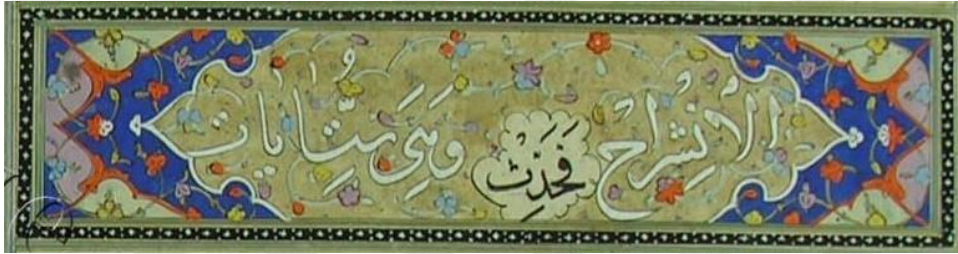 الانشراح فَحَدِّثْ وَهِيَ ستُّ اٰیات